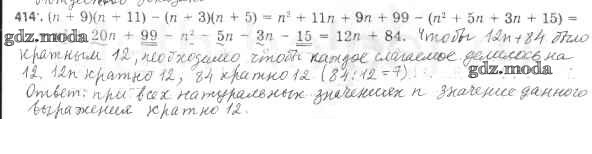 414. (n + 9)(n + 11) − (n + 3)(n + 5) = n² + 11n + 9n + 99 − (n² + 5n + 3n + 15) =
gdz.moda 20n + 99 − n² − 5n − 3n − 15 = 12n + 84. Чтобы 12n+84 было
кратным 12, необходимо чтобы каждое слагаемое делилось на
12, 12n кратно 12, 84 кратно 12 (84:12=7) gdz.moda
Ответ: при всех натуральных значениях n значение данного
выражения кратно 12.